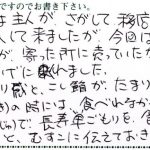 ですのでお書き下さい。
は主人が、さがして移店
入して来ましたが、今回は
が、寄った所に売っていたか
げに
れました。
り蔵と、こし鯖が、たまり
きの時には、食べれなか
じゅで、長寿早ごもりを、食
と、むすこに伝えておき